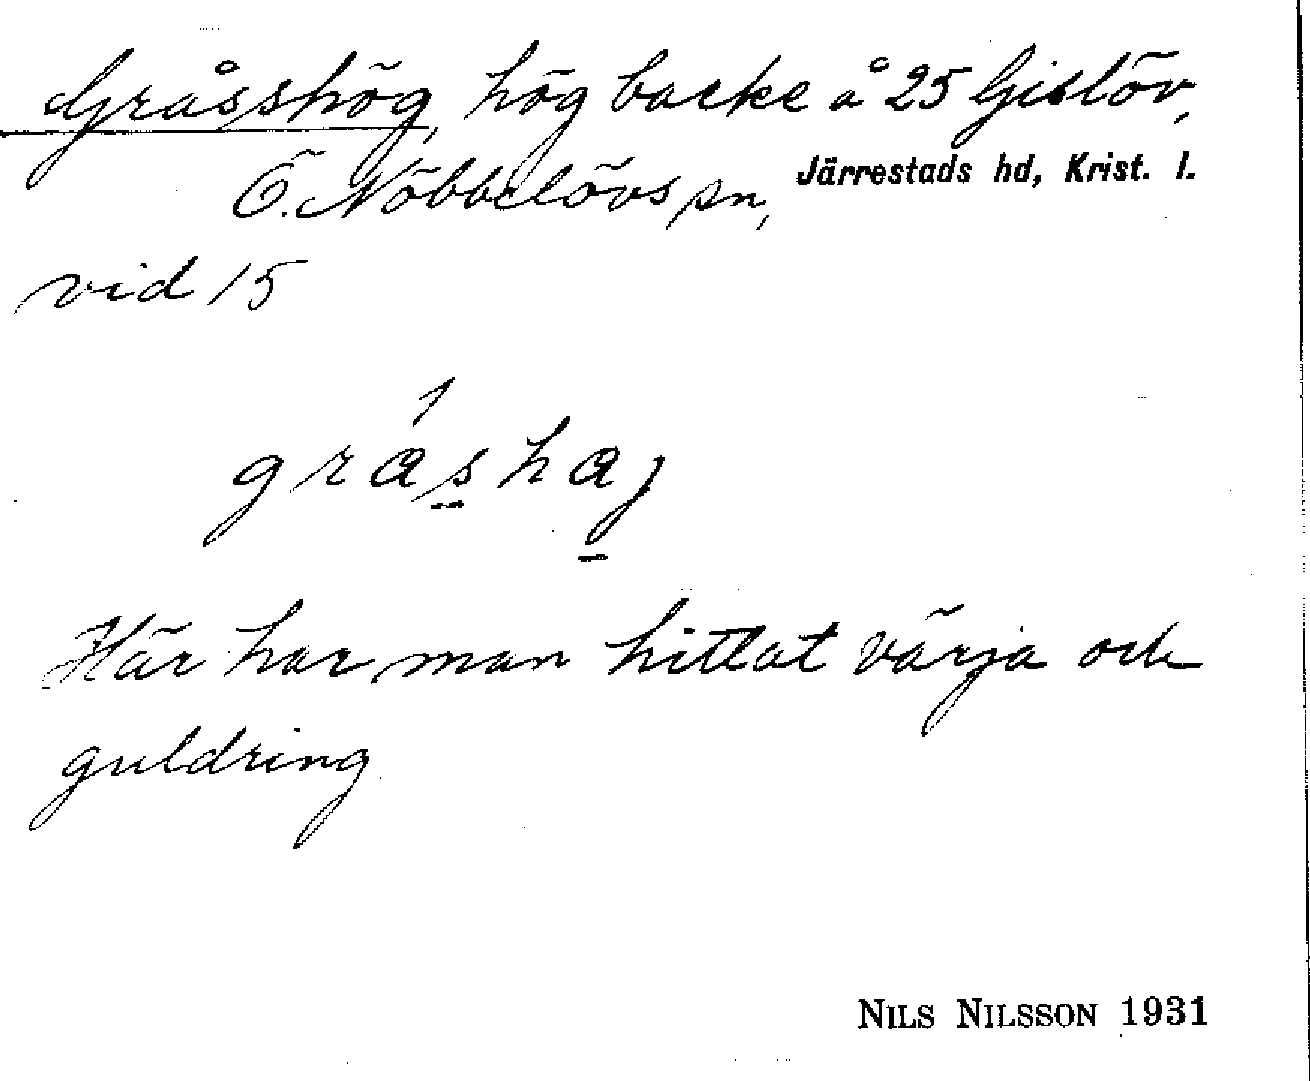 Gråsshög, hög backe å 25 Gislöv,
Ö. Nöbbelövs sn, Järrestads hd, Krist. l.
vid 15
Här har man hittat värja och
guldring
NILS NILSSON 1931